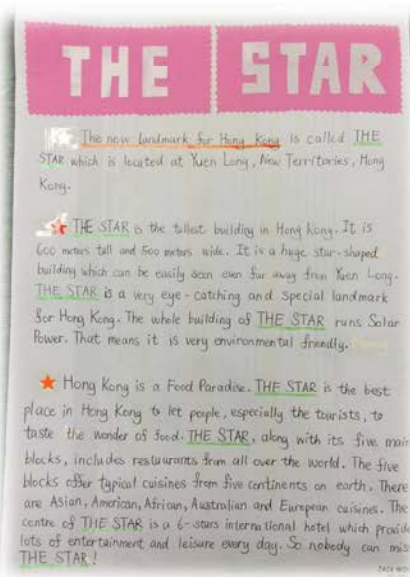 THE STAR
The new landmark for Hong Kong is called THE
STAR which is located at Yuen Long, New Territories, Hong
Kong.
THE STAR is the tallest building in Hong Kong. It is
600 meters tall and 500 meters wide. It is a huge star-shaped
building which can be easily seen even far away from Yuen Long.
THE STAR is a very eye-catching and special landmark
for Hong Kong. The whole building of THE STAR runs Solar
Power. That means it is very environmental friendly.
Hong Kong is a Food Paradise. THE STAR is the best
place in Hong Kong to let people, especially the tourists, to
taste the wonder of food. THE STAR, along with its five main
blocks, includes restaurants from all over the world. The five
blocks offer typical cuisines from five continents on earth. There
are Asian, American, African, Australian and European cuisines. The
centre of THE STAR is a 6-stars international hotel which provide
lots of entertainment and leisure every day. So nobody can miss
THE STAR!